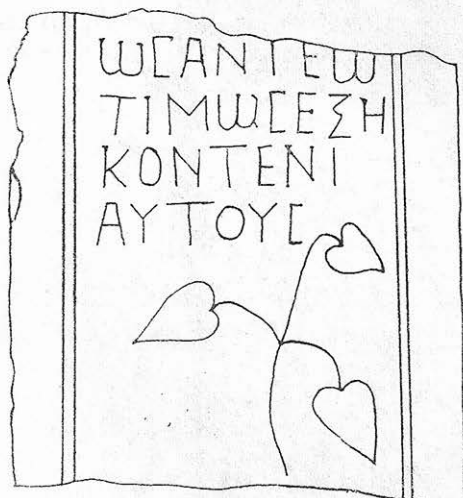 ΩϹΑΝΤΕΩ
ΤΙΜΩϹΕΣΗ
ΚΟΝΤΕΝΙ
ΑΥΤΟΥϹ